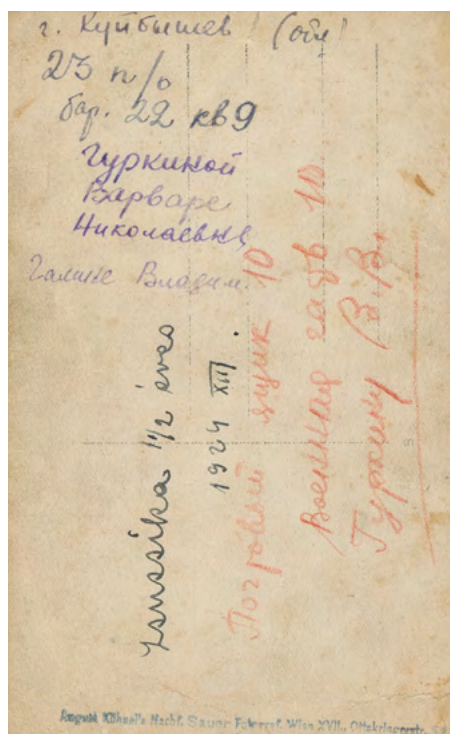 г. Куйбышев (обл)
23 п/о
бар. 22 кв 9
Гуркиной
Варваре
Николаевне
Галине Владим.
Zsuzsika 1 1/2 éves
1924 XII.
Почтовый ящик 10
Военная 10
Гуркину В.В.
August Kühnel's Nachf. Sauer Fotograf. Wien XVII., Ottakringerstr.